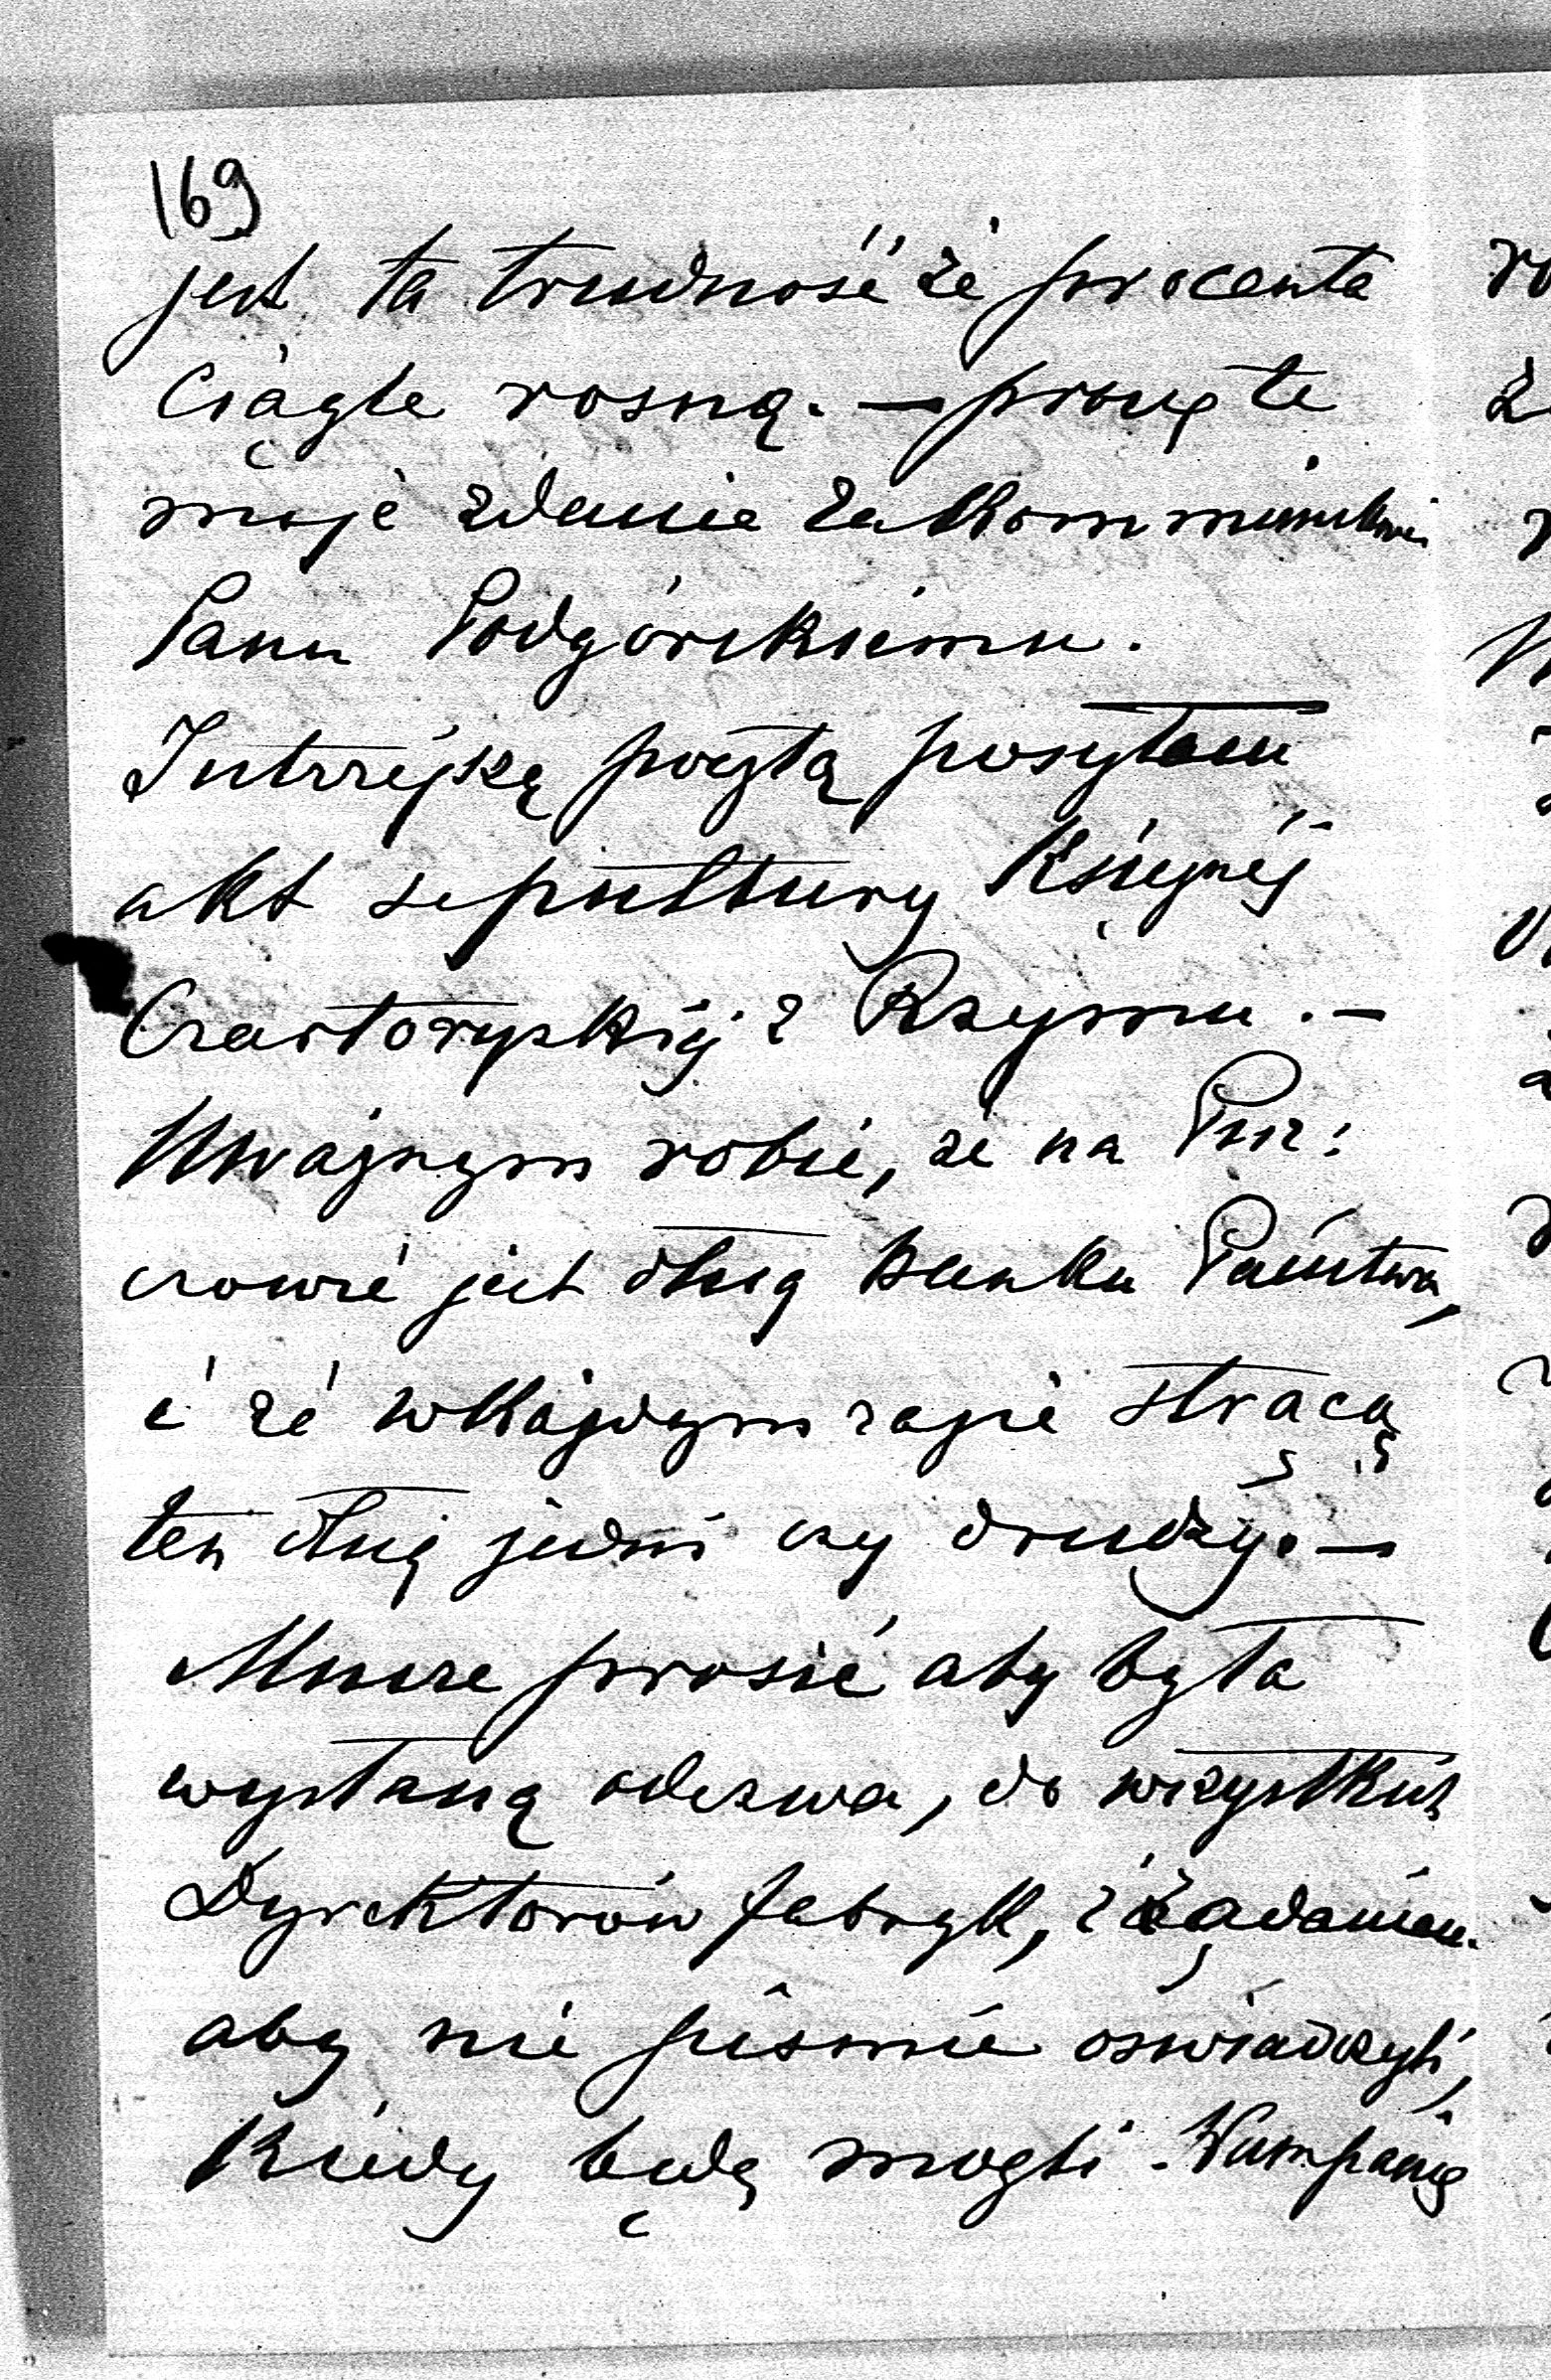 169
jest ta trudność że procenta
ciągle rosną. — proszę te
moje zdanie zakommunikow
Panu Podgórskiemu.
Jutrzejszą pocztą posyłam
akt sepultury Księżnej
Czartoryskiej z Rzymu. —
Uważnym robić, że na Pur:
cowie jest dług Banku Państwa,
i że w każdym razie stracą
ten dług jedni czy drudzy. —
Musze prosić aby była
wysłaną odezwa, do wszystkich
Dyrektorów fabryk, z żądaniem
aby nie piśmie oświadczyli,
kiedy będą mogli